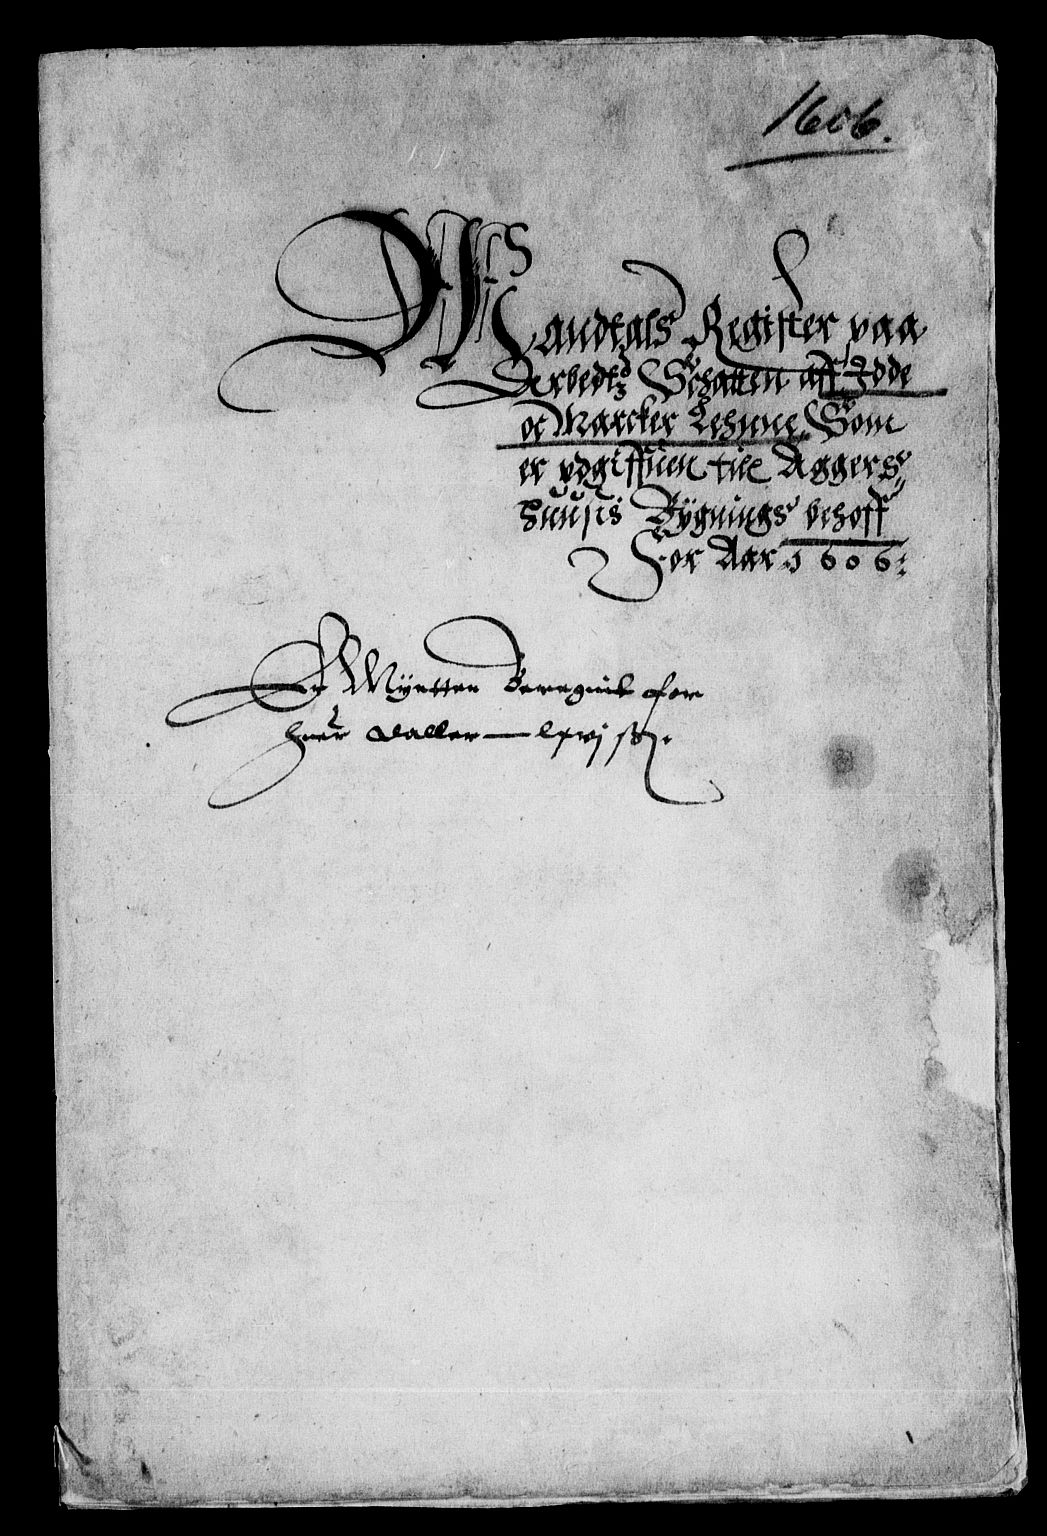 1606.
Mandtals Register paa
Arbedtz Schatten aff Idde
oc Marcker Lehnne, Som
er vdgiffuen till Aggers-
huusis Bÿgnings behoff
For Aar 1606:
Er Mÿntten Beregnit for
huer daller — lxvj ß